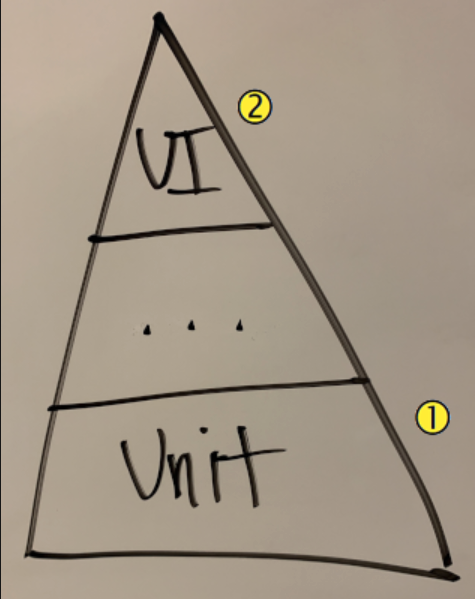 ②
UI
. . .
①
Unit